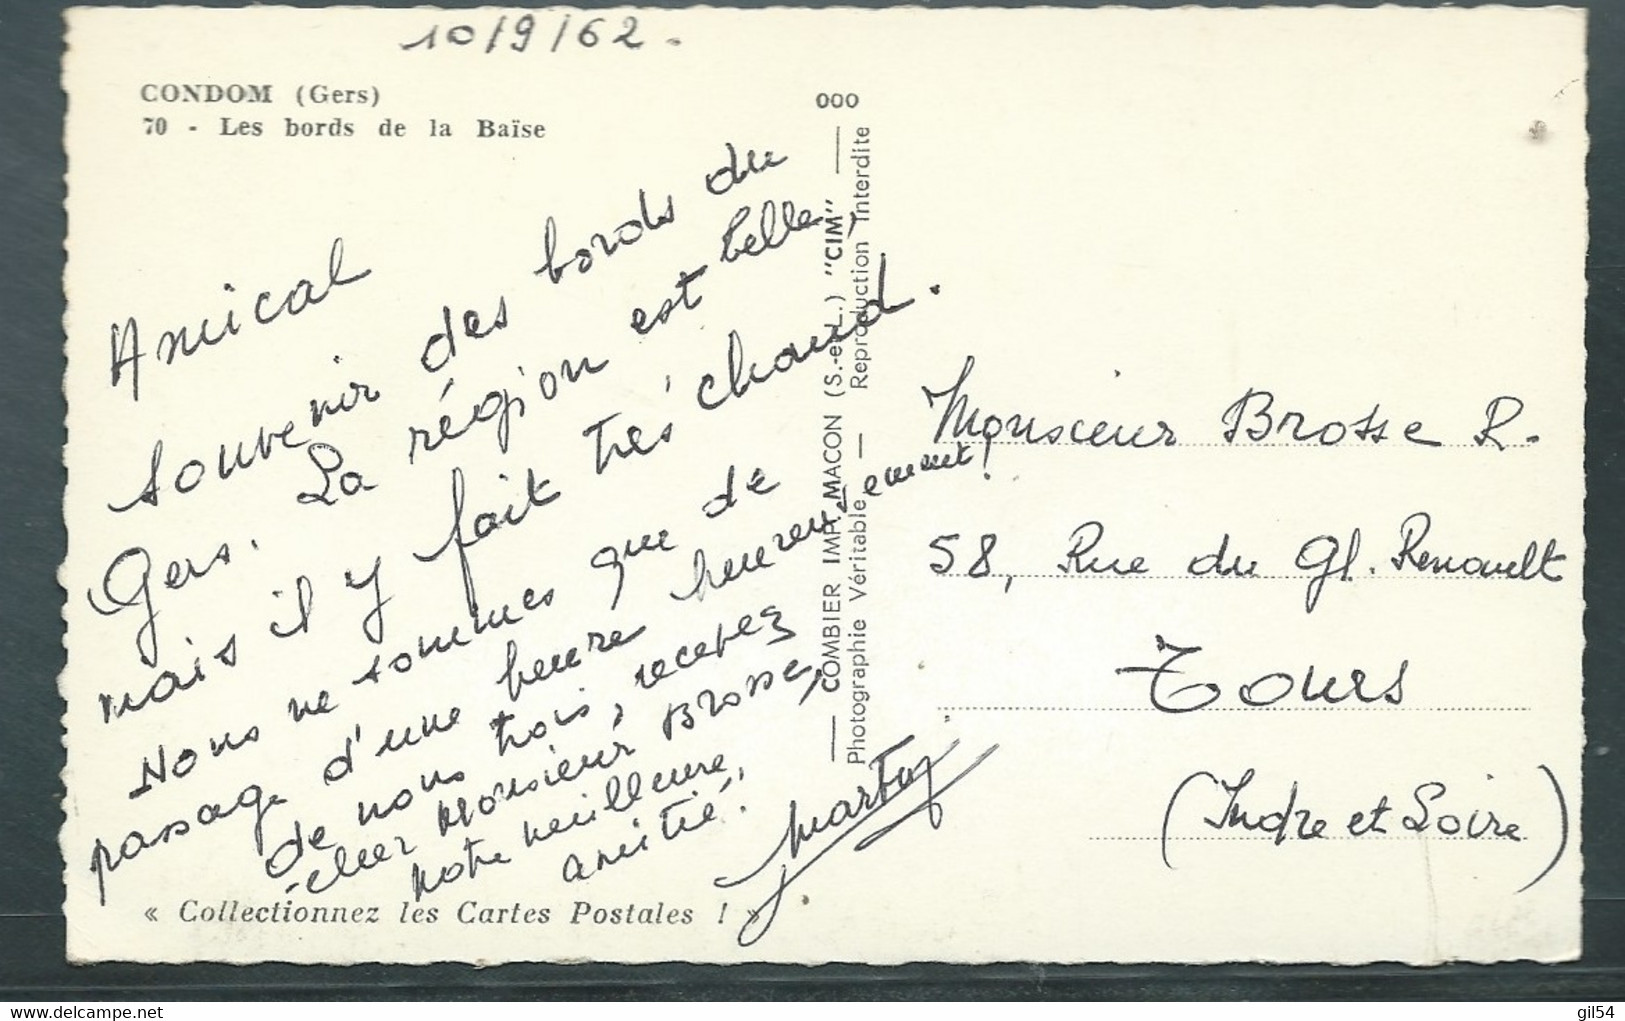 10/9/62.
CONDOM (Gers)
70 - Les bords de la Baïse
Amical
souvenir des bords du
Gers. La région est belle,
mais il y fait très chaud.
Nous ne sommes que de
passage d'une heure heureusement!
de nous trois, recevez
cher Monsieur Brosse,
notre meilleure
amitié.
« Collectionnez les Cartes Postales ! »
000
COMBIER IMP. MACON (S.-et-L.) "CIM"
Photographie Véritable — Reproduction Interdite
Monsieur Brosse R.
58, Rue du Gl. Renault
Tours
(Indre et Loire)
gil54